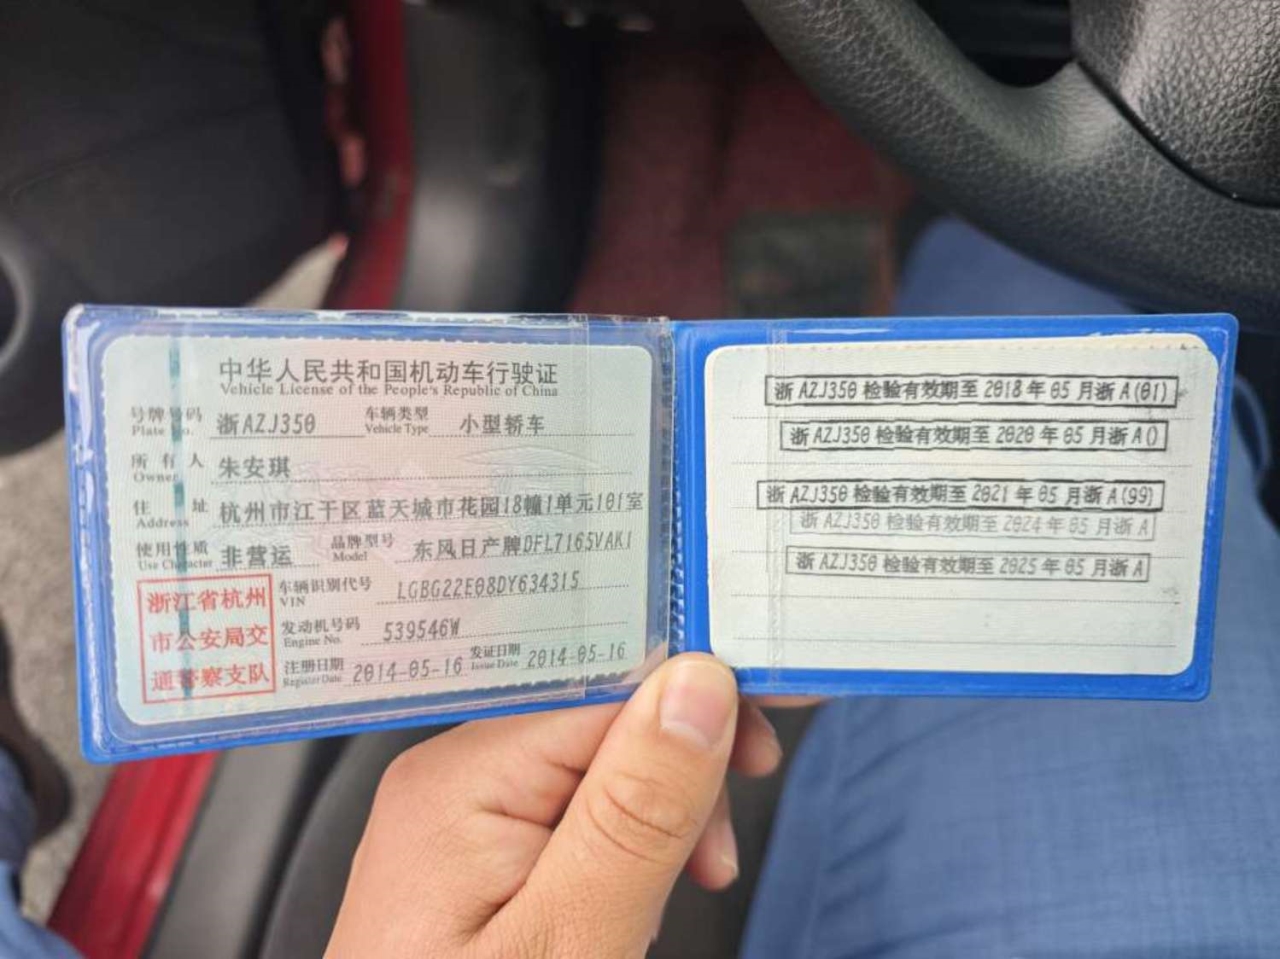 中华人民共和国机动车行驶证
Vehicle License of the People's Republic of China
号牌号码 浙AZJ350 车辆类型 小型轿车
Plate No. Vehicle Type
所有人 朱安琪
Owner
住址 杭州市江干区蓝天城市花园18幢1单元101室
Address
使用性质 非营运 品牌型号 东风日产牌DFL7165VAK1
Use Character Model
浙江省杭州
市公安局交
通警察支队
车辆识别代号 LGBG22E08DY634315
VIN
发动机号码 539546W
Engine No.
注册日期 2014-05-16 发证日期 2014-05-16
Register Date Issue Date
浙AZJ350检验有效期至2018年05月浙A(01)
浙AZJ350检验有效期至2020年05月浙A()
浙AZJ350检验有效期至2021年05月浙A(99)
浙AZJ350检验有效期至2024年05月浙A
浙AZJ350检验有效期至2025年05月浙A